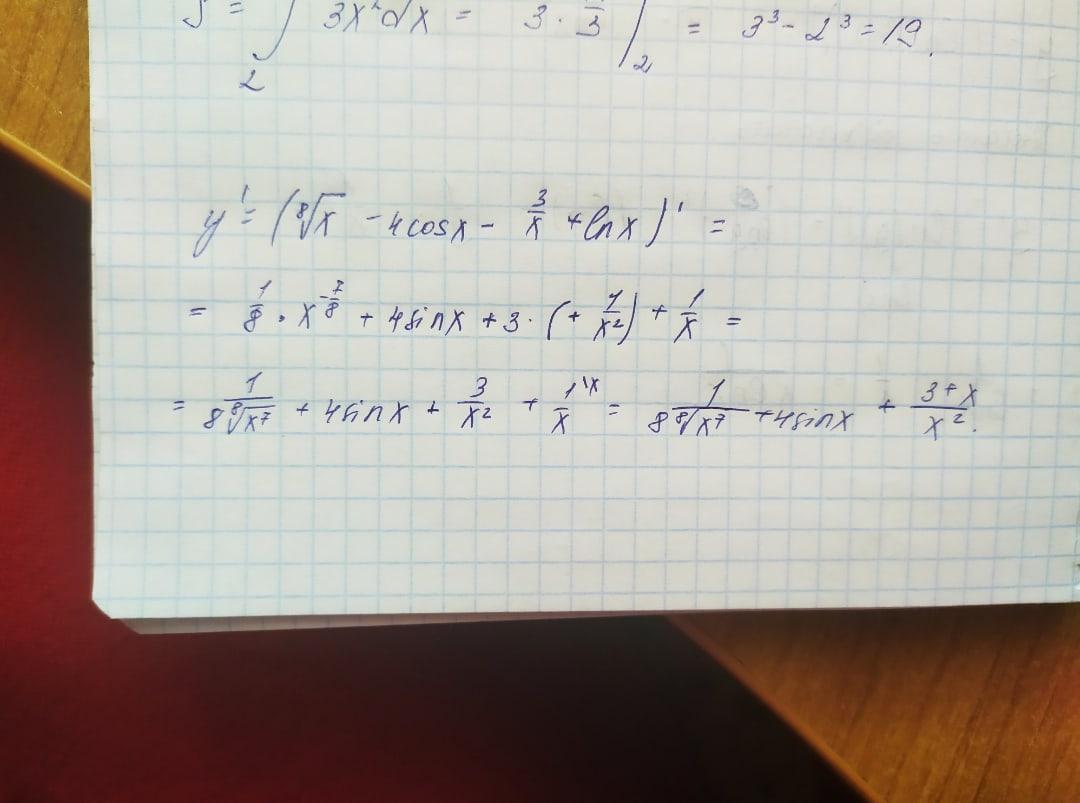 S = ∫₂ 3x²dx = 3 · /3 |₂ = 3³ - 2³ = 19.
y' = (⁸√x - 4cosx - 3/x + lnx)' =
= 1/8 · x^(-7/8) + 4sinx + 3 · (+ 1/x²) + 1/x =
= 1/(8 ⁸√x⁷) + 4sinx + 3/x² + 1\x/x = 1/(8 ⁸√x⁷) + 4sinx + (3+x)/x².